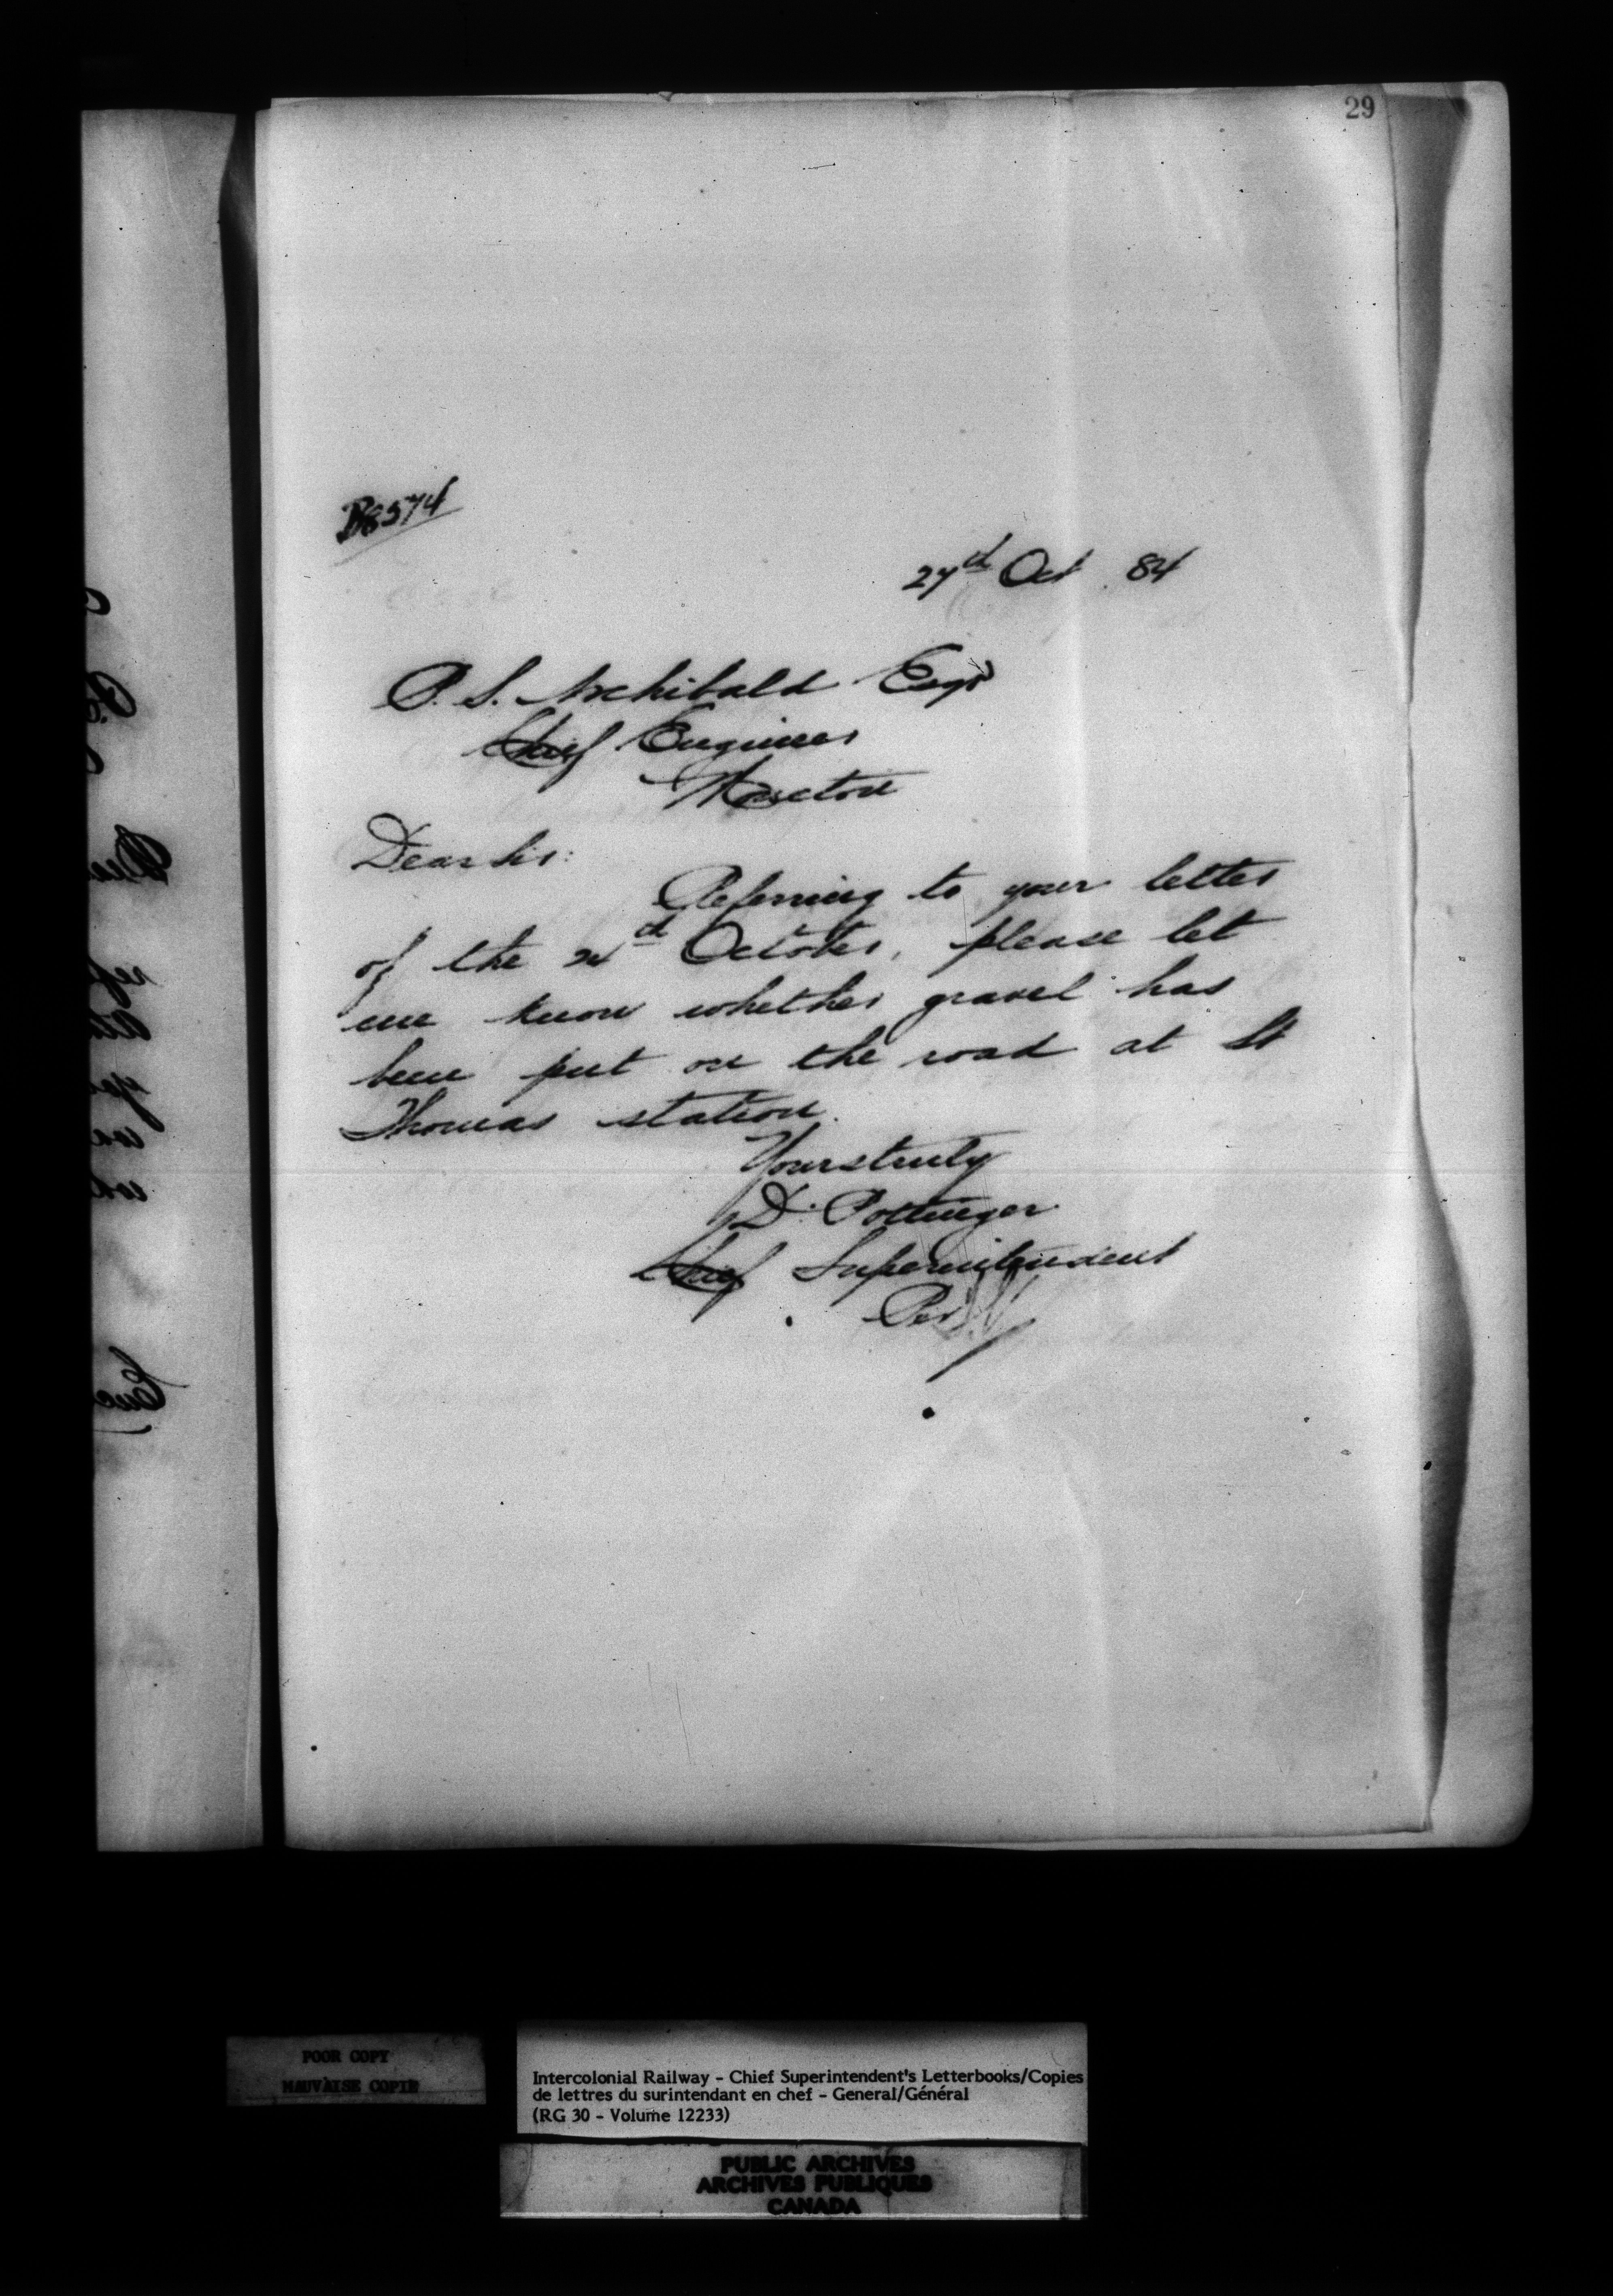 29
B8574
27d Oct 84
P. S. Archibald Esqr
Chief Engineer
Moncton
Dear Sir:
Referring to your letter
of the 2d October, please let
me know whether gravel has
been put on the road at St
Thomas station.
Yours truly
D. Pottinger
Chief Superintendent
Per
POOR COPY
MAUVAISE COPIE
Intercolonial Railway - Chief Superintendent's Letterbooks/Copies
de lettres du surintendant en chef - General/Général
(RG 30 - Volume 12233)
PUBLIC ARCHIVES
ARCHIVES PUBLIQUES
CANADA